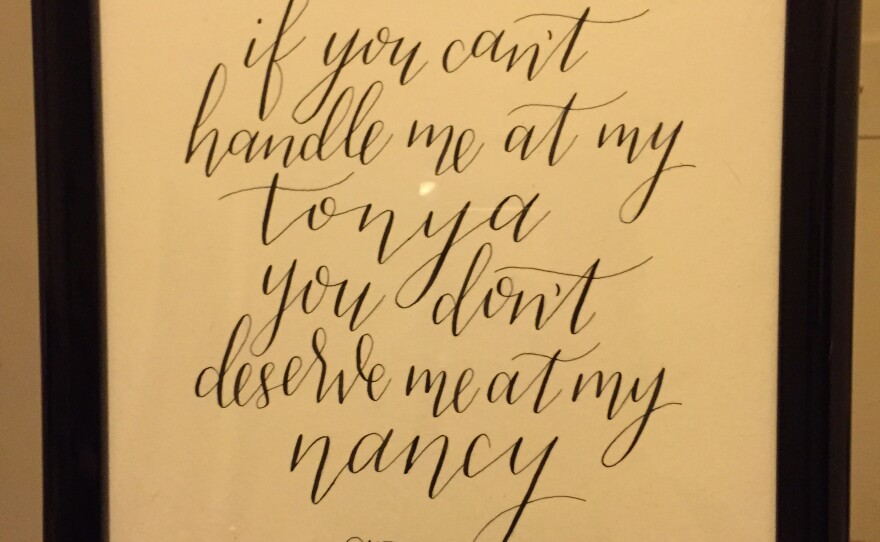 if you can't
handle me at my
tonya
you don't
deserve me at my
nancy